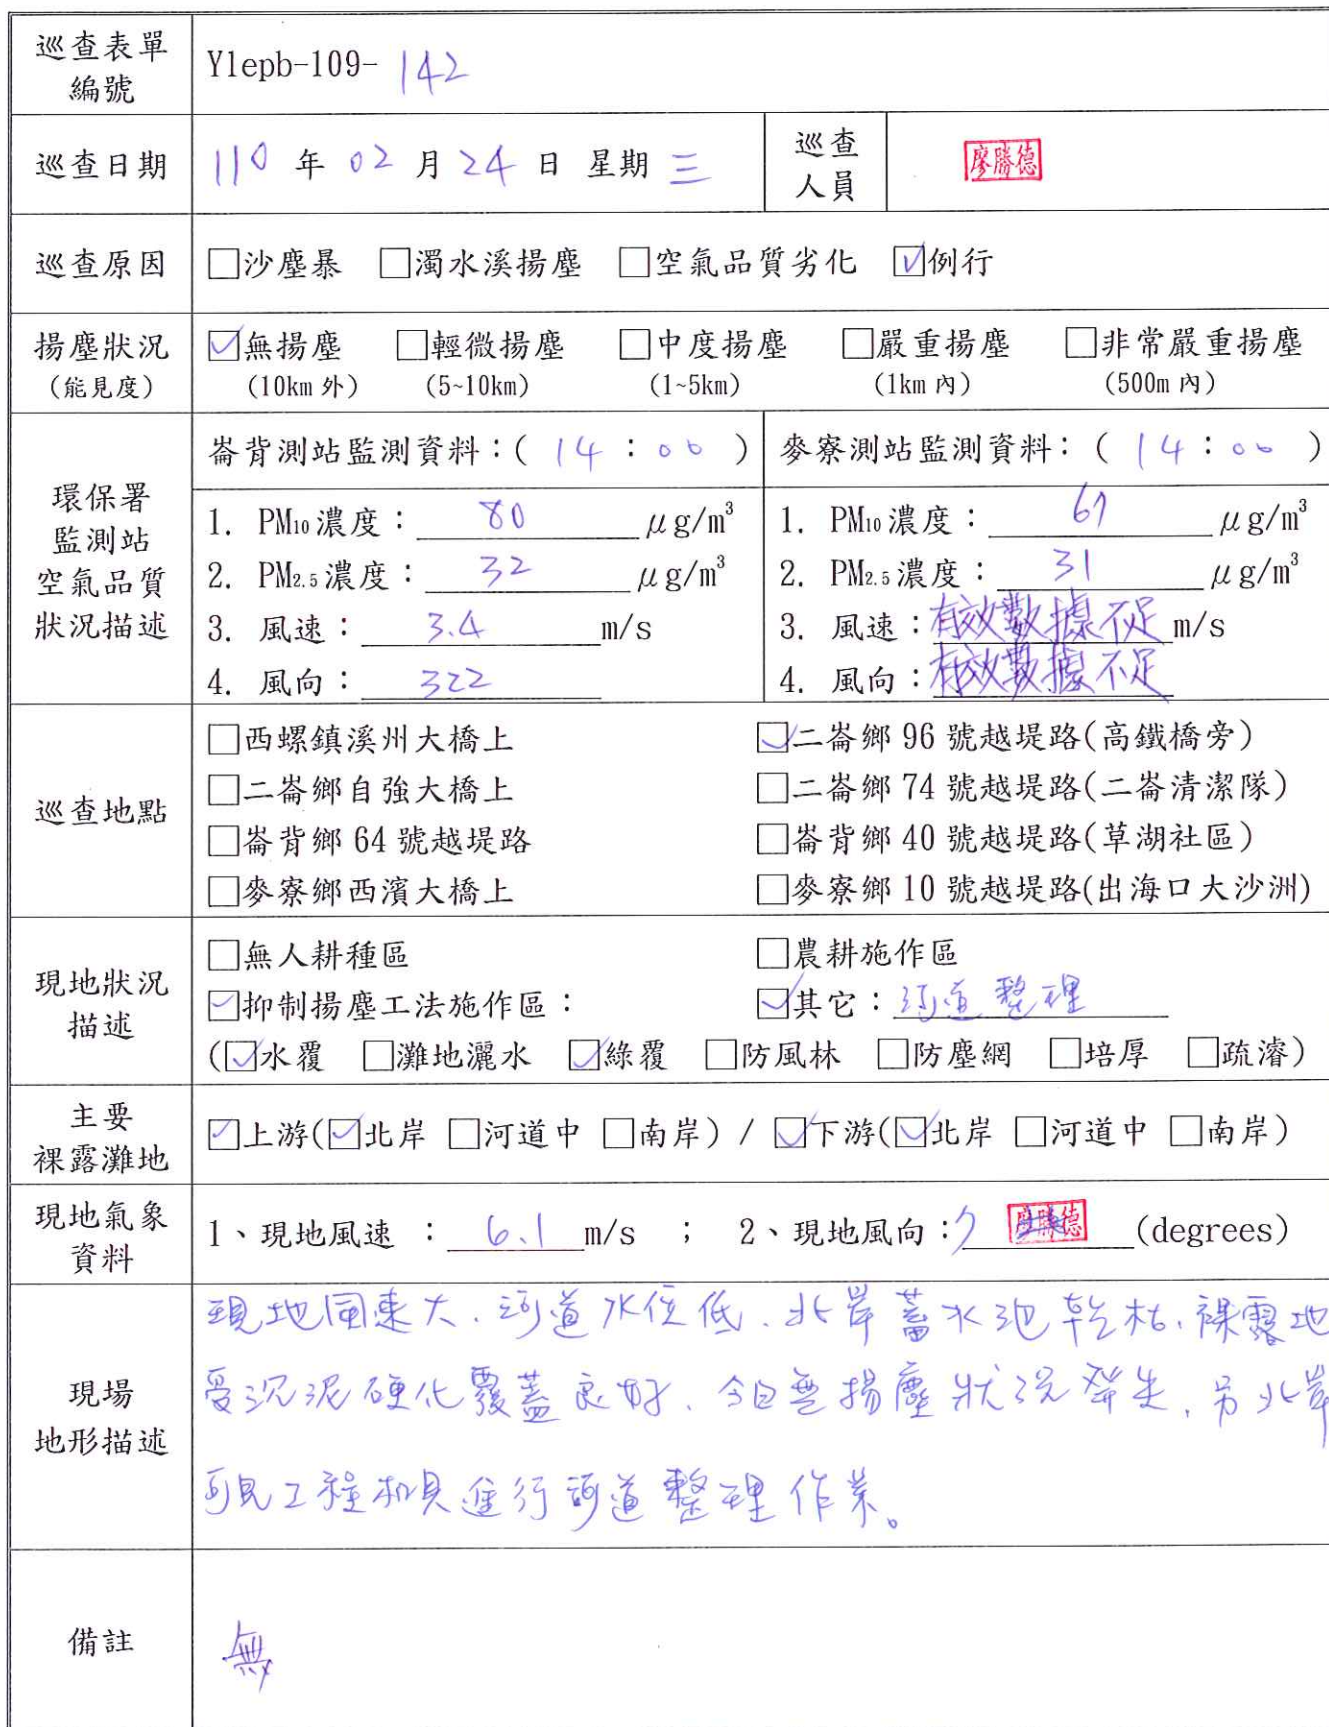 巡查表單
編號
Ylepb-109-142
巡查日期
110 年 02 月 24 日 星期 三
巡查
人員
廖勝德
巡查原因
□沙塵暴 □濁水溪揚塵 □空氣品質劣化 ☑例行
揚塵狀況
(能見度)
☑無揚塵 □輕微揚塵 □中度揚塵 □嚴重揚塵 □非常嚴重揚塵
(10km 外) (5~10km) (1~5km) (1km 內) (500m 內)
環保署
監測站
空氣品質
狀況描述
崙背測站監測資料：( 14：00 )
1. PM10 濃度：80 μg/m³
2. PM2.5 濃度：32 μg/m³
3. 風速：3.4 m/s
4. 風向：322
麥寮測站監測資料：( 14：00 )
1. PM10 濃度：67 μg/m³
2. PM2.5 濃度：31 μg/m³
3. 風速：有效數據不足 m/s
4. 風向：有效數據不足
巡查地點
□西螺鎮溪州大橋上 ☑二崙鄉 96 號越堤路(高鐵橋旁)
□二崙鄉自強大橋上 □二崙鄉 74 號越堤路(二崙清潔隊)
□崙背鄉 64 號越堤路 □崙背鄉 40 號越堤路(草湖社區)
□麥寮鄉西濱大橋上 □麥寮鄉 10 號越堤路(出海口大沙洲)
現地狀況
描述
□無人耕種區 □農耕施作區
☑抑制揚塵工法施作區： ☑其它：河道整理
(☑水覆 □灘地灑水 ☑綠覆 □防風林 □防塵網 □培厚 □疏濬)
主要
裸露灘地
☑上游(☑北岸 □河道中 □南岸) / ☑下游(☑北岸 □河道中 □南岸)
現地氣象
資料
1、現地風速 ：6.1 m/s ； 2、現地風向： 廖勝德 (degrees)
現場
地形描述
現地風速大、河道水位低、北岸蓄水池乾枯、裸露地
受沉泥硬化覆蓋良好、今日無揚塵狀況發生，另北岸
可見工程机具進行河道整理作業。
備註
無